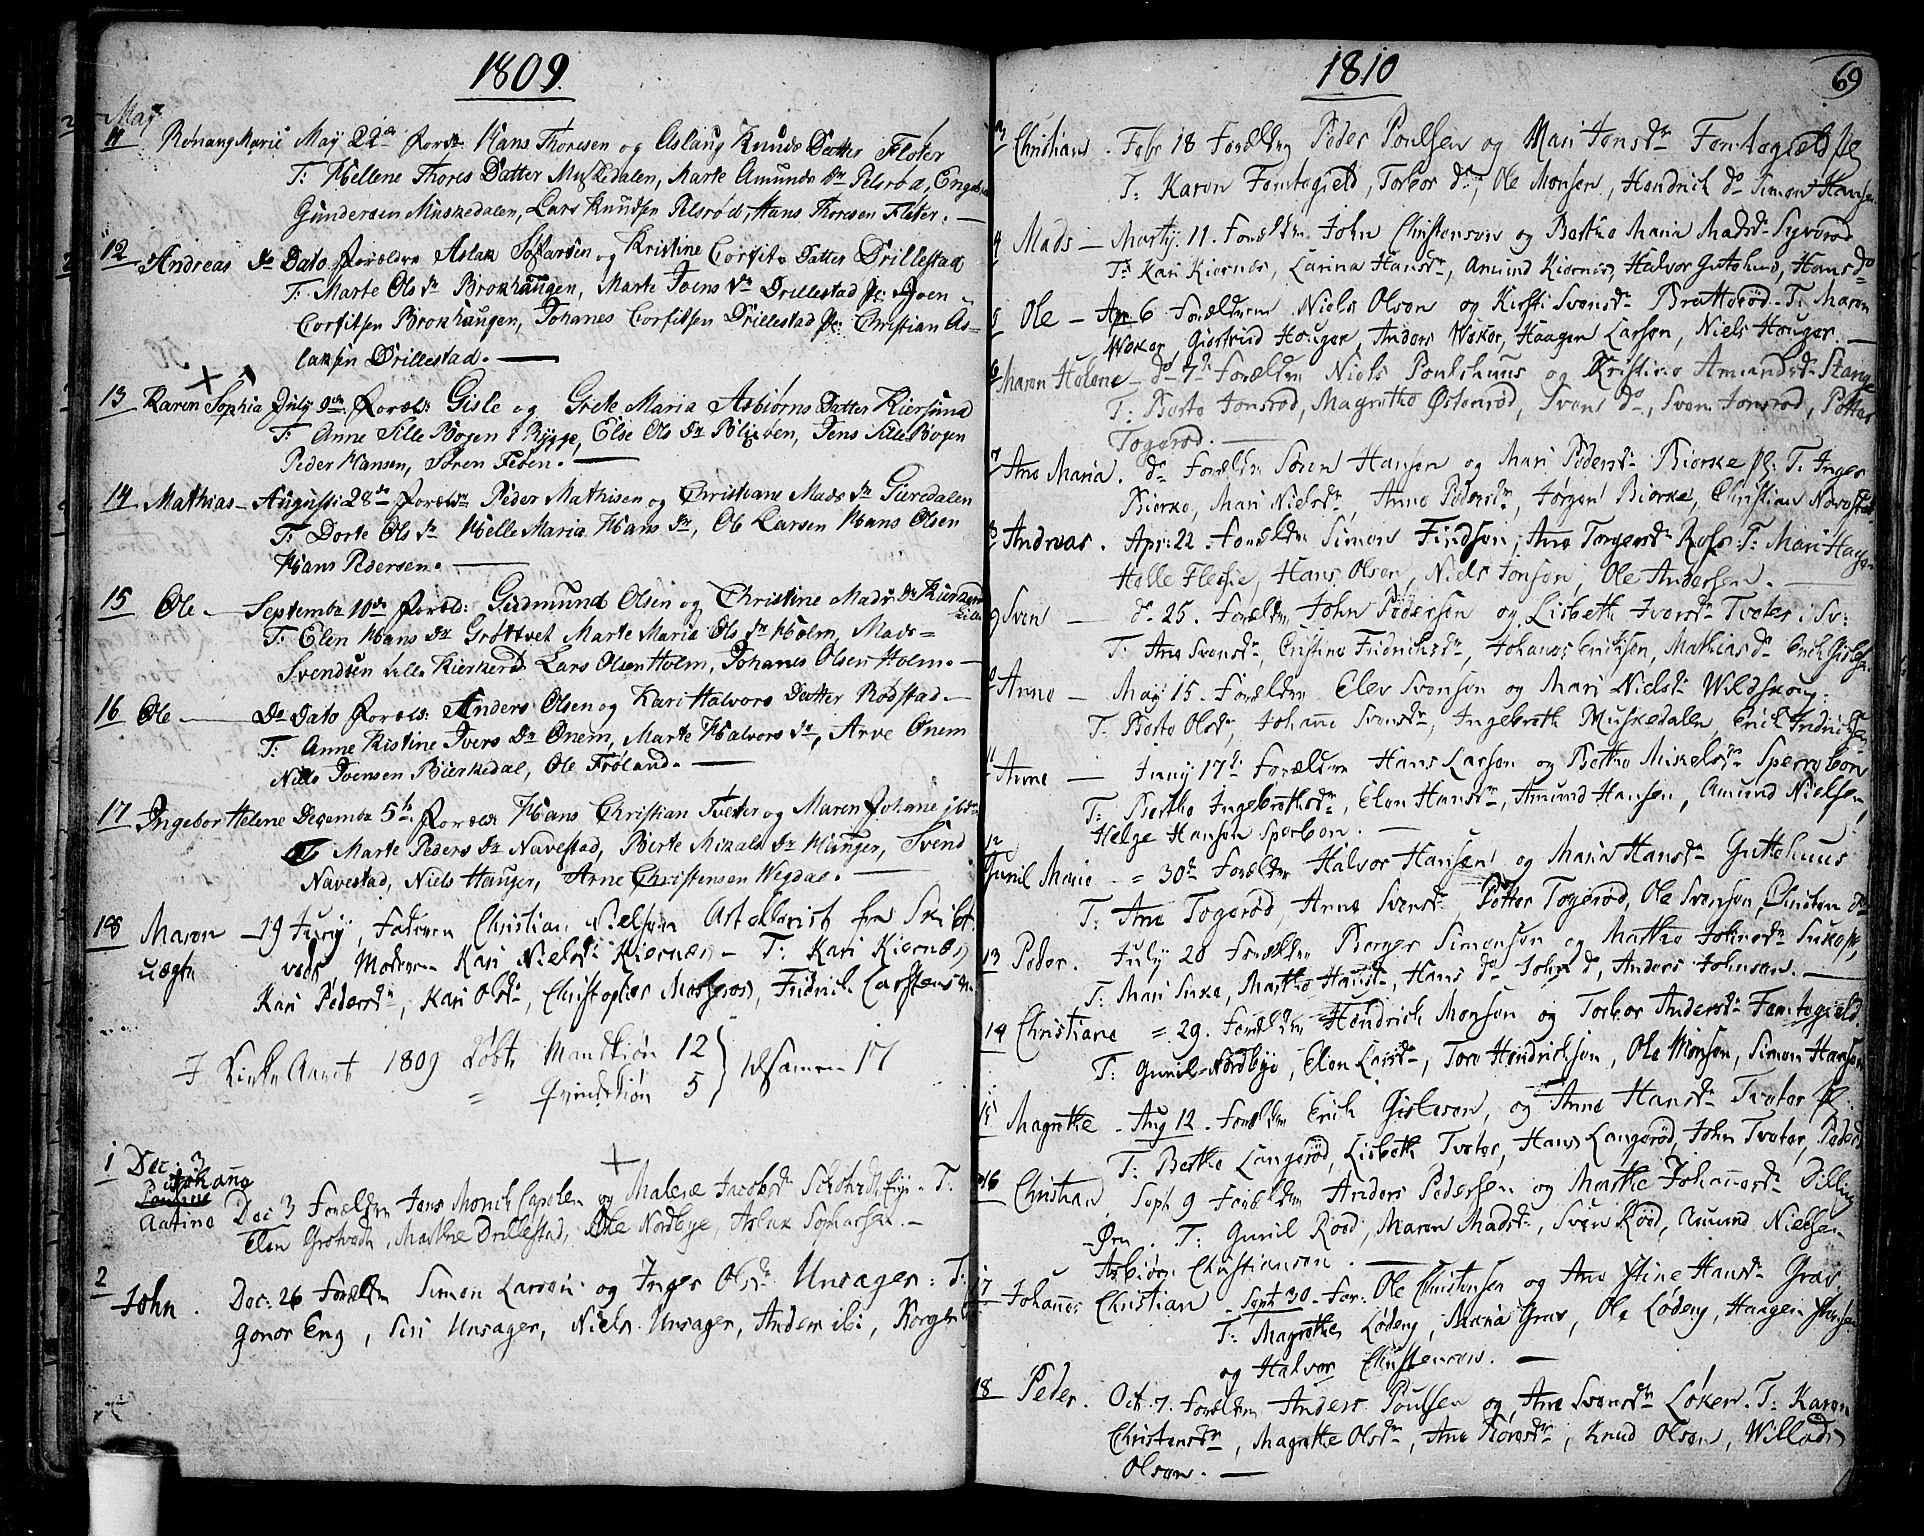 1809.
May
11 Rønnaug Marie May 22de Foreld. Hans Thoresen og Aslaug Knuds Datter Fløter
T: Hellene Thores Datter Muskedalen, Marte Amunds dr Pelsrød,
Gundersen Muskedalen, Lars Knudsen Pelsrød, Hans Thoresen Fløter. —
12 Andreas do Dato Foreldre Aslak Sofiarsen og Kristine Corfits Datter Drillestad
T: Marte Ols dr Brokhaugen, Marte Joens dr Drillestad Pl: Joen
Corfitsen Brokhaugen, Johanes Corfitsen Drillestad Pl: Christian As=
laksen Drillestad. —
13 Karen Sophia July 9de Foreld: Gisle og Grete Maria Asbiørns Datter Kiersund
T: Anne Sille Bogen i Rygge, Else Ols dr Blixben, Jens Sille Bogen
Peder Hansen, Søren Feben. —
14 Mathias — Augusti 28de Foreldr Peder Mathisen og Christiane Mads dr Gieredalen
T: Dorte Ols dr Helle Maria Hans dr, Ole Larsen Hans Olsen
Hans Pedersen. —
15 Ole — Septembr 10de Foreld: Gudmund Olsen og Christine Mads dr Kierkerød
Lille
T: Elen Hans dr Grøttvet Marte Maria Ols dr Holm, Mads=
Svendsen Lille Kierkerød Lars Olsen Holm, Johanes Olsen Holm. —
16 Ole — De Dato Foreld: Anders Olsen og Kari Halvors Datter Rødstad. —
T: Anne Kistine Ivers Dr Onem, Marte Halvors dr, Arve Onem
Niels Svensen Bierkedal, Ole Frøland. —
17 Ingebor Helene Decembr 5te Foreldr Hans Christian Tveter og Maren Johane
T: Marte Peders Dr Navestad, Berte Mikals Dr Hauger, Svend
Navestad, Niels Hauger, Arne Christensen Wegdal. —
18 Maren — 29 Juny, Faderen Christian Nielsen Astellerist fra Skibt
uægte vedt Moderen Kari Nielsdr Kiernæs — T: Kari Kiernæs
Kari Pedersdr, Kari Olsdr, Christopher Mosseros, Fridrich Carstens
I Kirke Aaret 1809 døbte Mandkiøn 12 } tilsamen 17
= Qvindekiøn 5
1 Dec: 3
Johana
Aatino Dec 3 Forældre Jens Monck Capelen og Malene Jacobsdr — T:
Elen Grøtvedt, Marthe Drillestad, Ole Nordbye, Aslak Sophiasen. —
2
John. Dec: 26 Forældre Simon Larsen og Inger Olsdr Unsager: T:
Gonor Eng, Siri Unsager, Niels Unsager, Anders ibi,
1810
69
3 Christians. Febr 18 Forældre Peder Poulsen og Mari Jensdr Femtegield Pl
T: Karen Femtegield, Torbor do, Ole Monsen, Hendrich do Simon Hansen
4 Mads — Marty. 11. Forældre John Christensen og Berthe Maria Madsdr
T: Kari Kiernes, Larina Hansdr, Amund Kiernes, Halvor Gutehus, Hans do
5 Ole — Apr 6 Forældrene Niels Olsen og Kirsti Svensdr Bratterød. T: Maren
Woker Giertrud Houger, Anders Woker, Haagen Larsen, Niels Houger. —
6 Maren Helene — do 7de Forældre Niels Poulshuus og Kristine Amundsdr Stange
T: Berte Jonsrød, Magrethe Østenrød, Sven do, Sven Jonsrød, Petter
Togerød. —
7 Ane Maria. do Forældre Søren Hansen og Mari Pedersdr Bierke Pl: T: Inger
Bierke, Mari Nielsdr, Anne Pedersdr, Jørgen Bierke, Christian Navestad
8 Andreas. Apr: 22. Forældre Simon Findsen, Ane Torgersdr Ross T: Mari Hagen
Helle Flessie, Hans Olsen, Niels Jonsen, Ole Andersen. —
9 Sven — do 25. Forældre John Pedersen og Lisbeth Iversdr Tveter i Sv:
T: Ane Svensdr, Cristine Fridrichsdr, Johanes Erichsen, Mathias do Erich Gislesen
10 Anne — May 15. Forældre Elev Svensen og Mari Nielsdr Wildskoug.
T: Berte Olsdr, Johane Svensdr, Ingebreth Muskedalen, Erich Fridrichsen
11 Anne — Juny 17de Forældre Hans Larsen og Berthe Mickelsdr Sperrebon
T: Berthe Ingebrethsdr, Elen Hansdr, Amund Hansen, Amund Nielsen,
Helge Hansen Sperbon. —
12
Gunil Marie — = 30de Forældre Halvor Hansen og Maria Hansdr Guttehuus
T: Ane Togerød, Anne Svensdr Petter Togerød, Ole Svensen, Christen do
13 Peder. July 28 Forældre Borger Simonsen og Marthe Johnsdr Suke Pl,
T: Mari Suke, Marthe Hansdr, Hans do John do, Anders Johnsen. —
14 Christiane = 29. Forældre Hendrich Monsen og Torbor Andersdr Femtegield.
T: Gunil Nordbye, Elen Larsdr, Tore Hendrichsen, Ole Monsen, Simon Hansen
15 Magrethe. Aug 12. Forældre Erich Gislesen, og Anne Hansdr Tveter Pl:
T: Berthe Langerød, Lisbeth Tveter, Hans Langerød, John Tveter, Peder do
16 Christian Sept 9 Forældre Anders Pedersen og Marthe Johannesdr Dilling
Ørn. T: Gunil Roed, Maren Madsdr, Sven Roed, Amund Nielsen
Asbiørn Christiansen. —
17 Johannes Christian. Sept 30. For: Ole Christensen og Ane Stine Hansdr Grav
T: Magrethe Lødeng, Maria Grav, Ole Lødeng, Haagen
og Halvor Christensens. —
18 Peder. Oct. 7. Forældre Anders Poulsen og Ane Svensdr Løken. T: Karen
Christensdr, Magrethe Olsdr, Ane Toresdr, Knud Olsen, Willads
Olsen. —